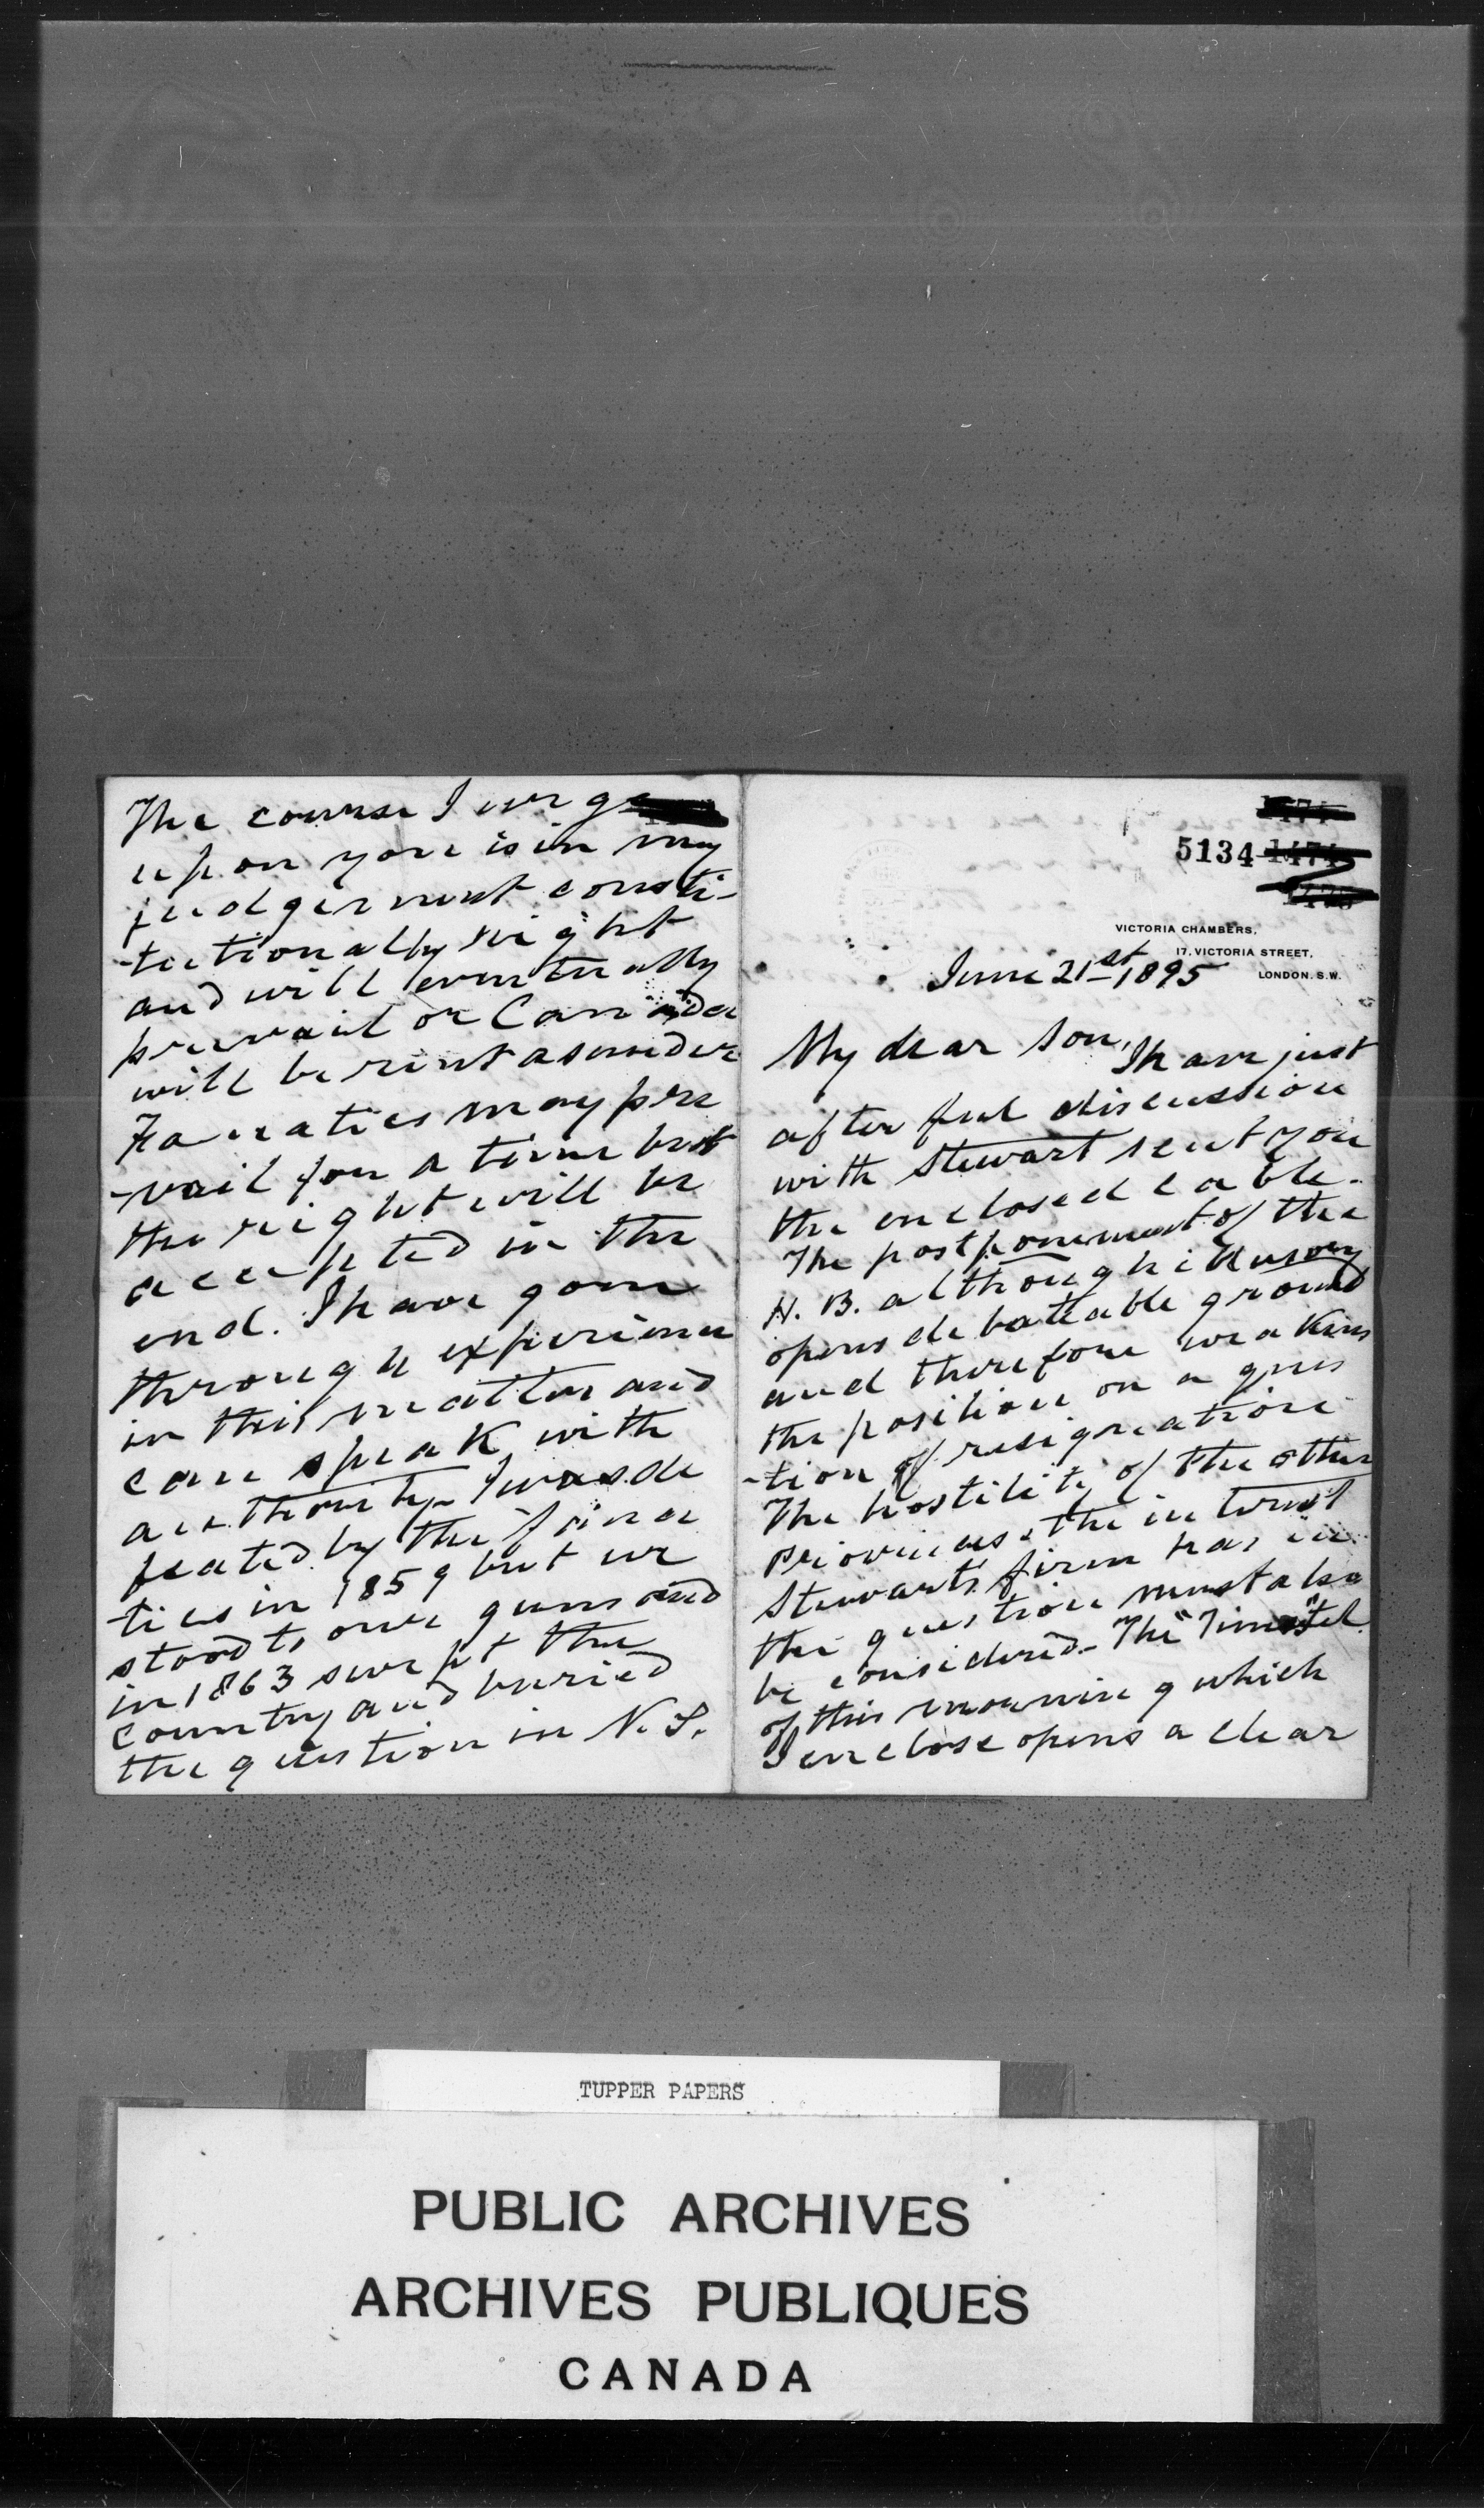 The course I urge
upon you is in my
judgement consti-
-tutionally right
and will eventually
prevail or Canada
will be rent asunder
Fanatics may pre
-vail for a time but
the right will be
accepted in the
end. I have gone
through experience
in this matter and
can speak with
authority. I was de
feated by the fana
-tics in 1859 but we
stood to our guns and
in 1863 swept the
country and buried
the question in N.S.
5134
VICTORIA CHAMBERS,
17, VICTORIA STREET,
LONDON. S.W.
June 21st 1895
My dear Son,
I have just
after full discussion
with Stewart sent you
the enclosed cable.
The postponement of the
H. B. although illusory
opens debateable ground
and therefore weakens
the position on a ques
-tion of resignation
The hostility of the other
Provinces & the interest
Stewarts firm has in
the question must also
be considered. The "Times" tel.
of this morning which
I enclose opens a clear
TUPPER PAPERS
PUBLIC ARCHIVES
ARCHIVES PUBLIQUES
CANADA